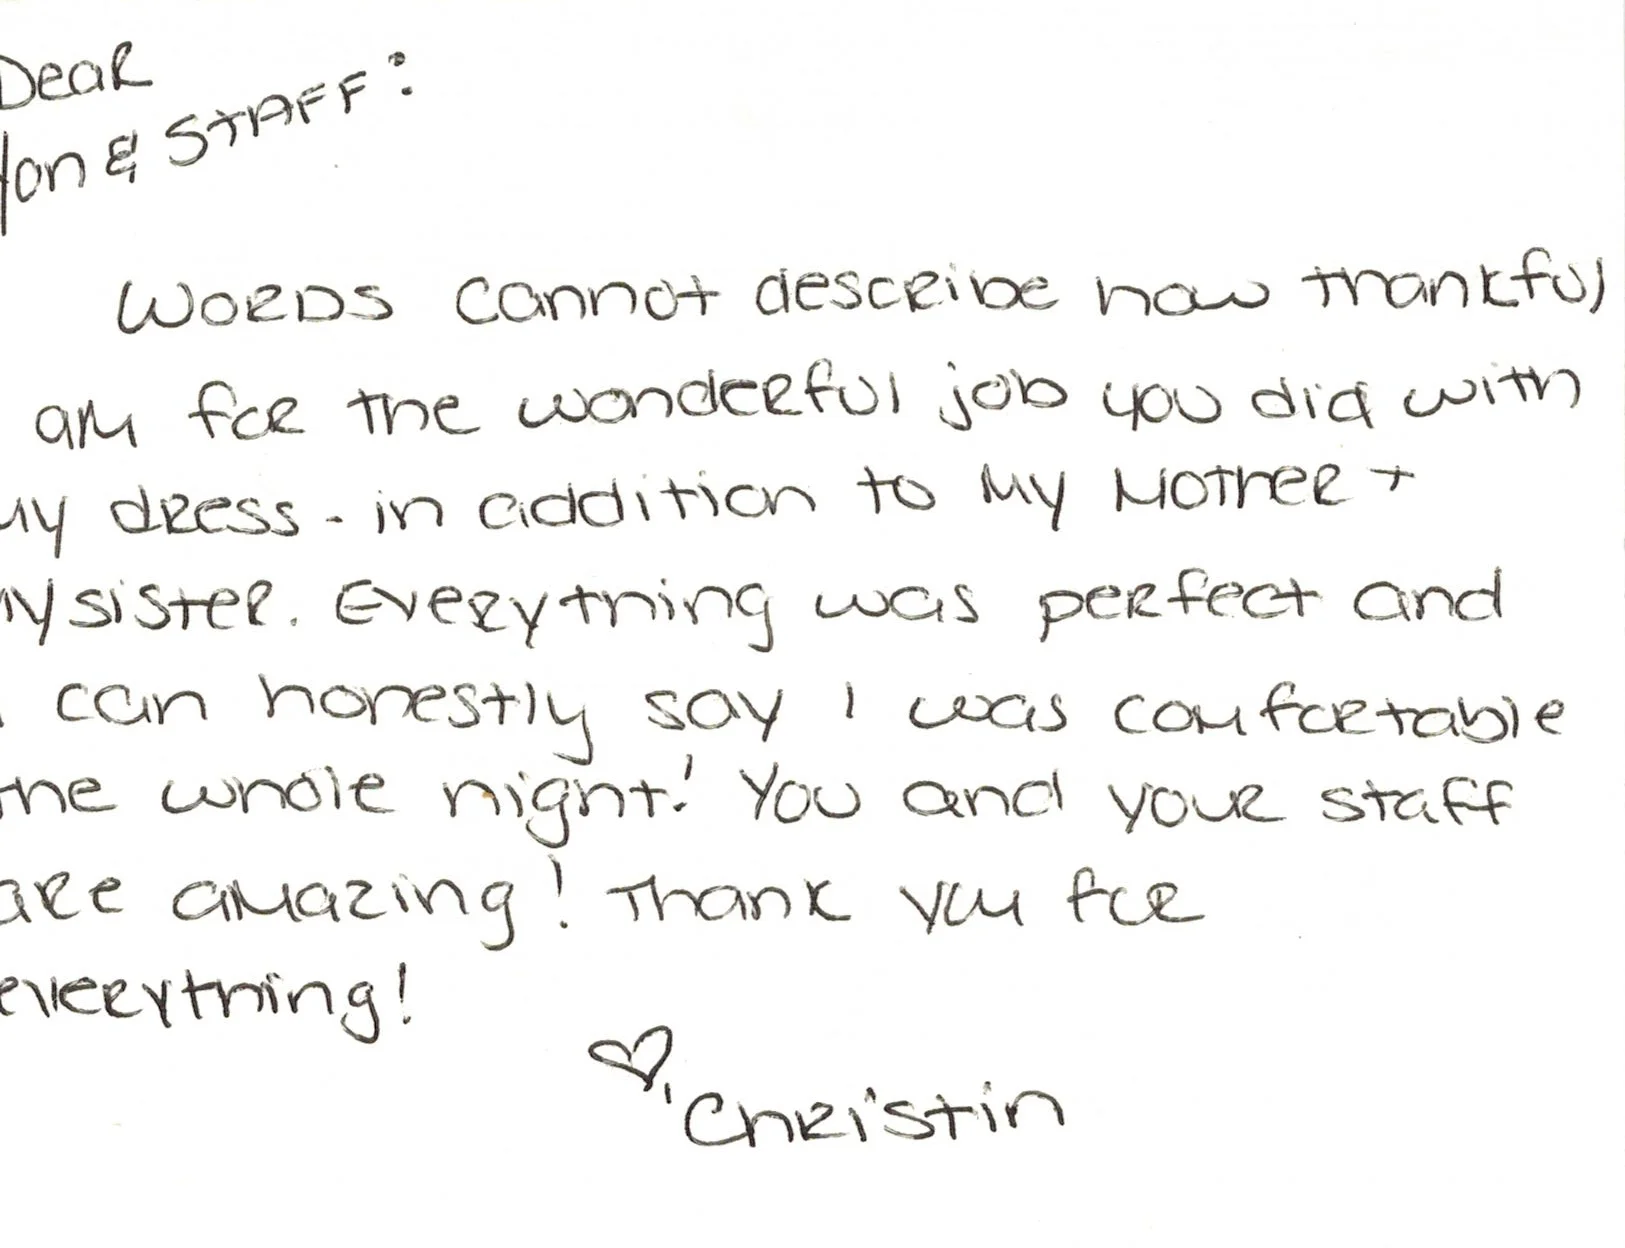 Dear
Yon & STAFF:
WORDS cannot describe how thankful
am for the wonderful job you did with
my dress - in addition to my Mother +
my sister. Everything was perfect and
I can honestly say I was comfortable
the whole night! You and your staff
are amazing! Thank you for
everything!
♡, Christin